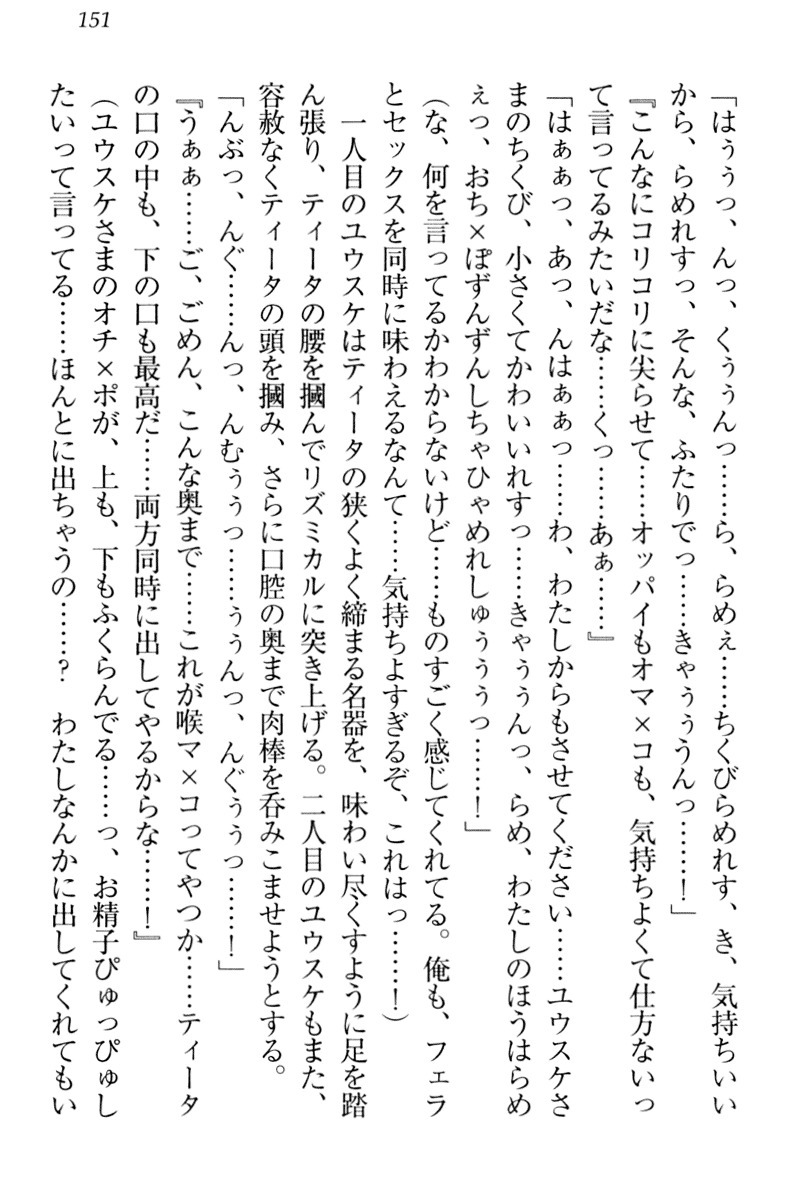 151
「はぅぅっ、んっ、くぅぅんっ……ら、らめぇ……ちくびらめれす、き、気持ちいい
から、らめれすっ、そんな、ふたりでっ……きゃぅぅうんっ……！」
『こんなにコリコリに尖らせて……オッパイもオマ×コも、気持ちよくて仕方ないっ
て言ってるみたいだな……くっ……あぁ……』
「はぁぁっ、あっ、んはぁぁっ……わ、わたしからもさせてください……ユウスケさ
まのちくび、小さくてかわいいれすっ……きゃぅぅんっ、らめ、わたしのほうはらめ
ぇっ、おち×ぽずんずんしちゃひゃめれしゅぅぅぅっ……！」
（な、何を言ってるかわからないけど……ものすごく感じてくれてる。俺も、フェラ
とセックスを同時に味わえるなんて……気持ちよすぎるぞ、これはっ……！）
一人目のユウスケはティータの狭くよく締まる名器を、味わい尽くすように足を踏
ん張り、ティータの腰を掴んでリズミカルに突き上げる。二人目のユウスケもまた、
容赦なくティータの頭を摑み、さらに口腔の奥まで肉棒を呑みこませようとする。
「んぶっ、んぐ……んっ、んむぅぅっ……ぅぅんっ、んぐぅぅっ……！」
『うぁぁ……ご、ごめん、こんな奥まで……これが喉マ×コってやつか……ティータ
の口の中も、下の口も最高だ……両方同時に出してやるからな……！』
（ユウスケさまのオチ×ポが、上も、下もふくらんでる……っ、お精子ぴゅっぴゅし
たいって言ってる……ほんとに出ちゃうの……？　わたしなんかに出してくれてもい